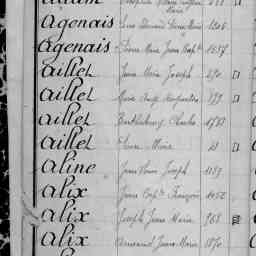 Agenais
Agenais Pierre Marie Jean Bapte 1657
Aillet Jean Marie Joseph 690
Aillet Marie Ange 899
Aillet Barthélemy Charles 1783
Aillet Pierre Marie
Aline Jean Pierre Joseph 1189
Alix Jean Bapte François 1452
Alix Joseph Jean Marie 968
Alix Armand Jean Marie 1870